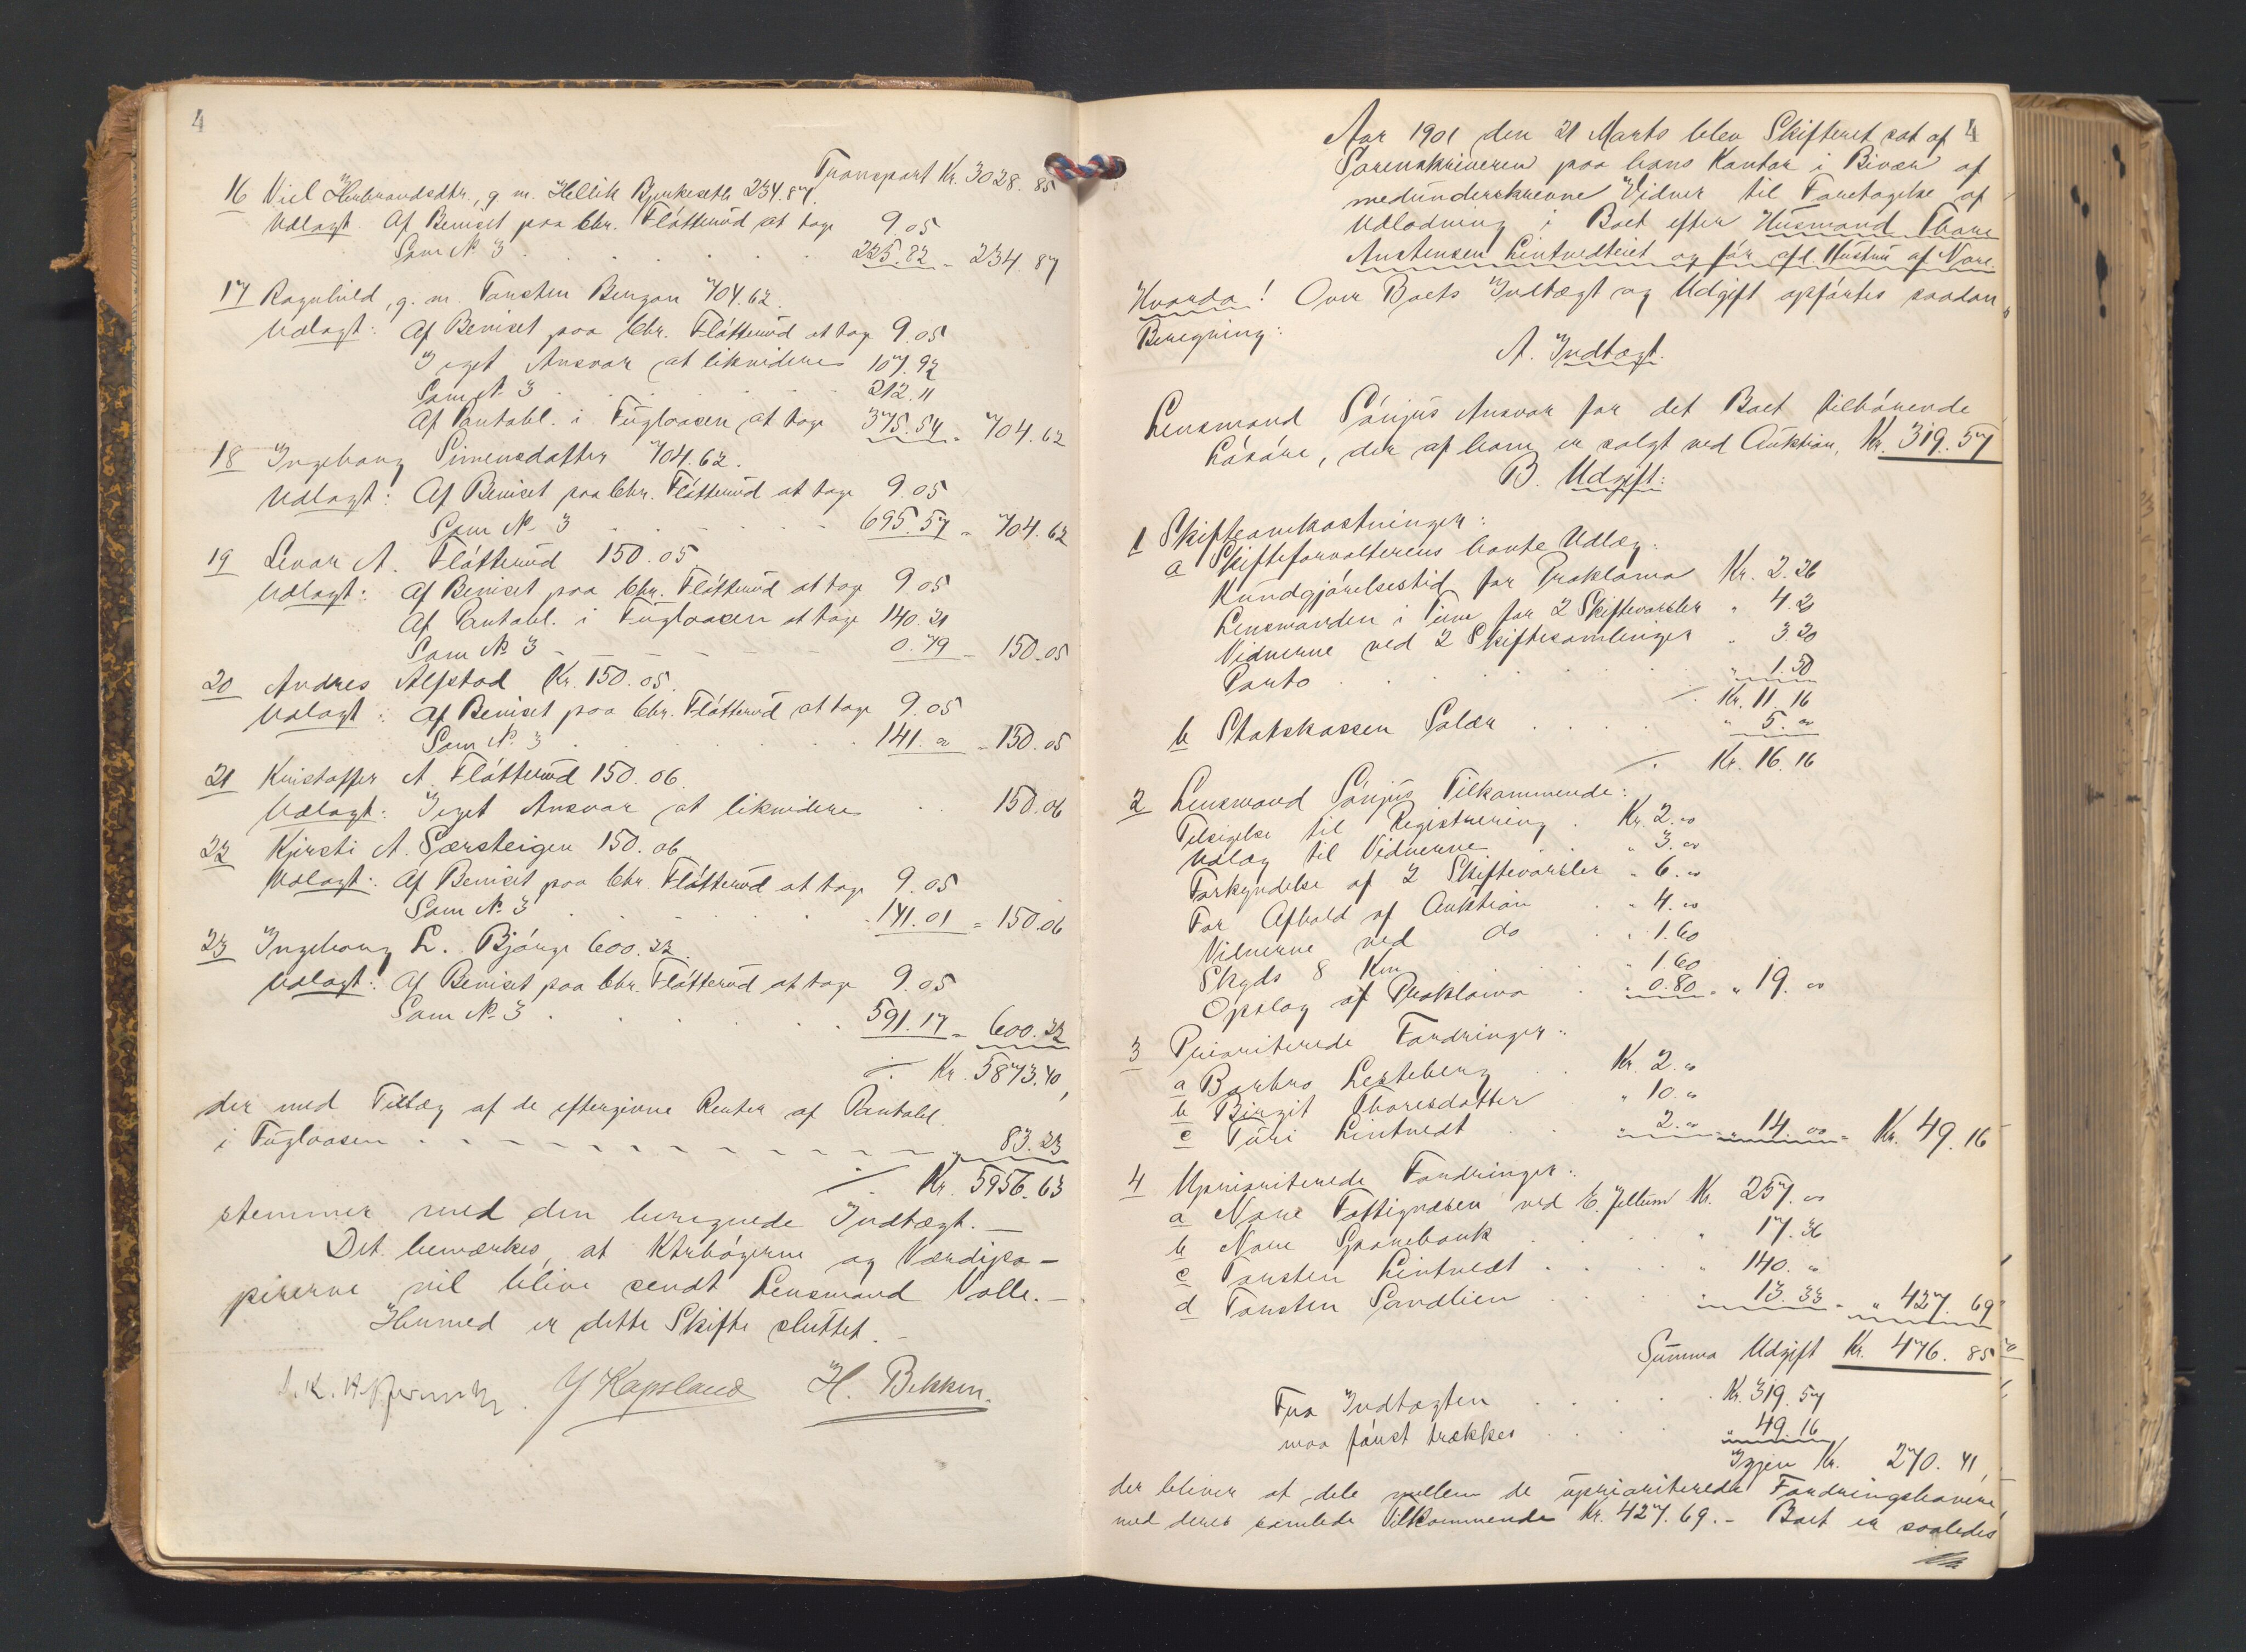 4
Transport Kr. 3028.85
16 Viel Herbrandsdtr., g. m. Hellik Bjerkeseth 234.87.
Udlagt. Af Beviset paa Chr. Fløtterud at tage 9.05
Som No 3 . . . . . . 225.82 = 234.87
17 Ragnhild, g. m. Torsten Bergan 704.62.
Udlagt: Af Beviset paa Chr. Fløtterud at tage 9.05
I eget Ansvar at likvidere 107.92
Som No 3 . . . . . 212.11
Af Pantobl. i Fugleaasen at tage 375.54 = 704.62
18 Ingeborg Simensdatter 704.62.
Udlagt: Af Beviset paa Chr. Fløtterud at tage 9.05
Som No 3 . . . . . . 695.57 = 704.62
19 Sevar A. Fløtterud 150.05
Udlagt: Af Beviset paa Chr. Fløtterud at tage 9.05
Af Pantobl. i Fugleaasen at tage 140.21
Som No 3 - - - - - - 0.79 = 150.05
20 Andres Alfstad Kr. 150.05.
Udlagt: Af Beviset paa Chr. Fløtterud at tage 9.05
Som No 3 . . . . . . 141.00 = 150.05
21 Kristoffer A. Fløtterud 150.06.
Udlagt: I eget Ansvar at likvidere . . 150.06
22 Kjersti A. Særsteigen 150.06
Udlagt: Af Beviset paa Chr. Fløtterud at tage 9.05
Som No 3 . . . . . . 141.01 = 150.06
23 Ingeborg L. Bjørge 600.22.
Udlagt: Af Beviset paa Chr. Fløtterud at tage 9.05
Som No 3 . . . . . . 591.17 = 600.22
./. Kr. 5873.40,
der med Tillæg af de eftergivne Renter af Pantobl.
i Fugleaasen - - - - - - - - - - 83.23
./. Kr. 5956.63
stemmer med den beregnede Indtægt. -
Det bemærkes, at Ktrbøgerne og Værdipa-
pirerne vil blive sendt Lensmand Valle. -
Hermed er dette Skifte sluttet. -
Kapsland H. Bekken.
4
Aar 1901 den 21 Marts blev Skifteret sat af
Sorenskriveren paa hans Kontor i Bivær af
medunderskrevne Vidner til Foretagelse af
Udlodning i Boet efter Husmand Thore
Anstensen Lintvedteiet og før afd. Hustru af Nore.
Hvorda! Over Boets Indtægt og Udgift opførtes saadan
Beregning:
A. Indtægt.
Lensmand Sønjus Ansvar for det Boet tilhørende
Løsøre, der af ham er solgt ved Auktion, Kr. 319.57
B. Udgift:
1 Skifteomkostninger:
a Skifteforvalterens havte Udlæg:
Kundgjørelsestid for Proklama Kr. 2.26
Lensmanden i Tinn for 2 Skiftevarsler " 4.20
Vidnerne ved 2 Skiftesamlinger " 3.20
Porto . . . . . . . " 1.50
./. Kr. 11.16
b Statskassen Salær . . . . " 5.00
./. Kr. 16.16
2 Lensmand Sønjus Tilkommende:
Tilsigelse til Registrering . Kr. 2.00
Udlæg til Vidnerne . . " 3.00
Forkyndelse af 2 Skiftevarsler " 6.00
For Afhold af Auktion . " 4.00
Vidnerne ved do . . " 1.60
Skyds 8 Km . . . " 1.60
Opslag af Proklama . " 0.80 = " 19.00
3 Prioriterede Fordringer:
a Barbro Lesteberg . . Kr. 2.00
b Birgit Thoresdatter " 10.00
c Turi Lintvedt . . " 2.00 = " 14.00 = Kr. 49.16
4 Uprioriterede Fordringer:
a Nore Fattigvæsen ved E. Jellum Kr. 257.00
b Nore Sparebank . . . . . " 17.36
c Torsten Lintvedt . . . . . " 140. "
d Torsten Sandlien . . . . " 13.33 = " 427.69
Summa Udgift Kr. 476.85
Fra Indtægten . . . . . Kr. 319.57
maa først trækkes . . . . " 49.16
Igjen Kr. 270.41,
der bliver at dele mellem de uprioriterede Fordringshavere,
med deres samlede Tilkommende Kr. 427.69. - Boet er saaledes